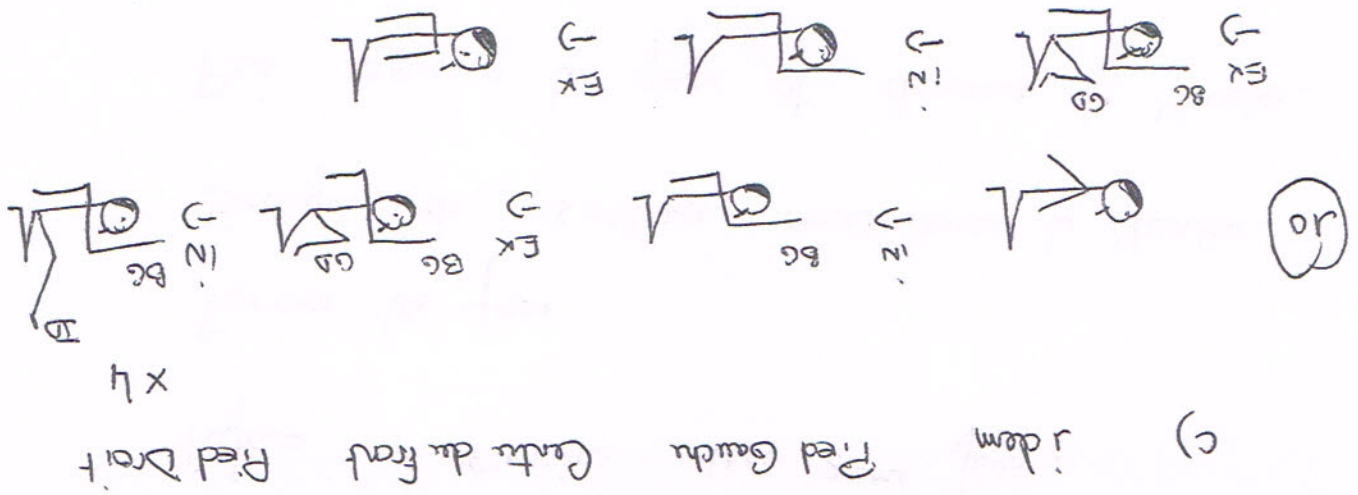 c) idem Pied Gauche Centre du front Pied Droit
× 4
JD
10 → iN BG → EX BG GD → iN BG
→ EX BG GD → iN → EX